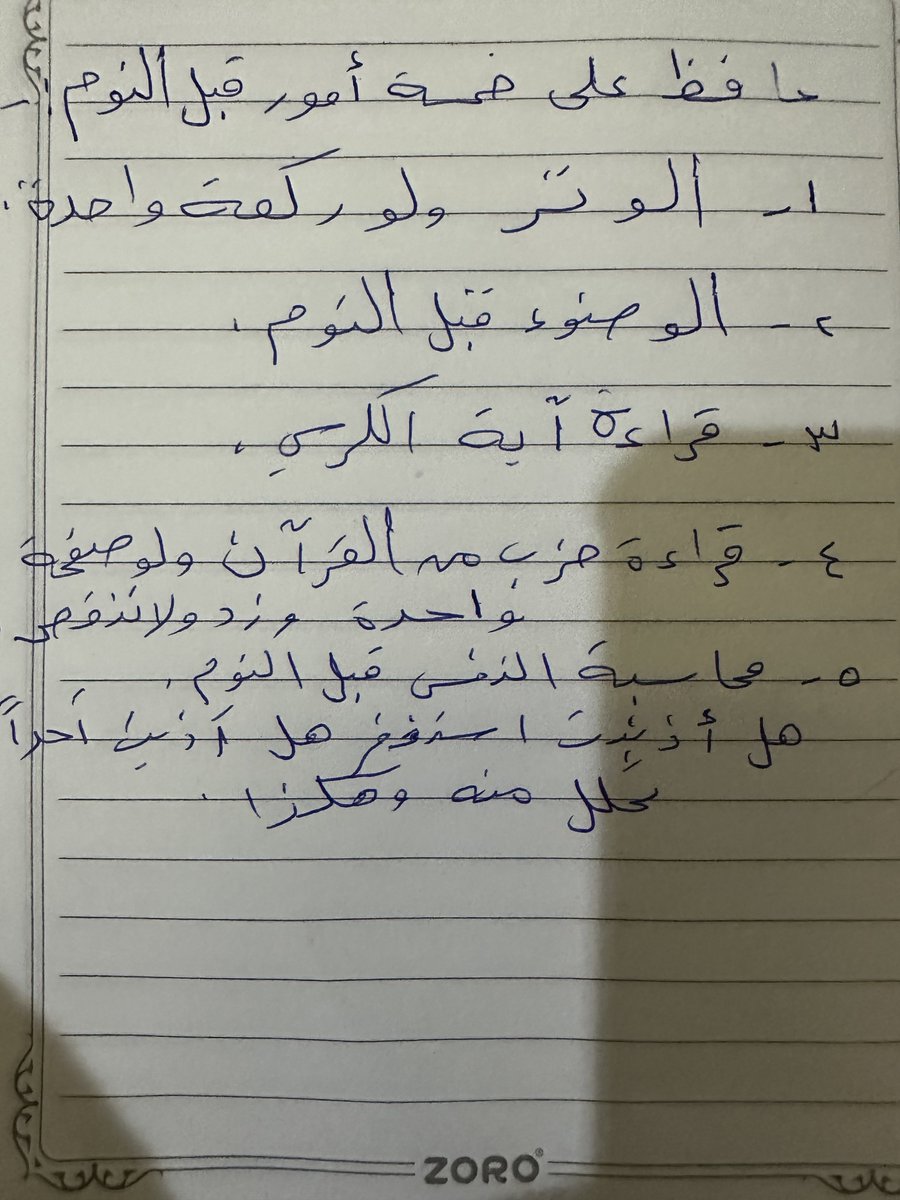 حافظ على خمسة أمور قبل النوم :
١- الوتر ولو ركعة واحدة .
٢- الوضوء قبل النوم .
٣- قراءة آية الكرسي .
٤- قراءة حزب من القرآن ولو صفحة
واحدة وزد ولا تنقص
٥- محاسبة النفس قبل النوم .
هل أذنبت استغفر هل آذيت أحداً
تحلل منه وهكذا .
ZORO